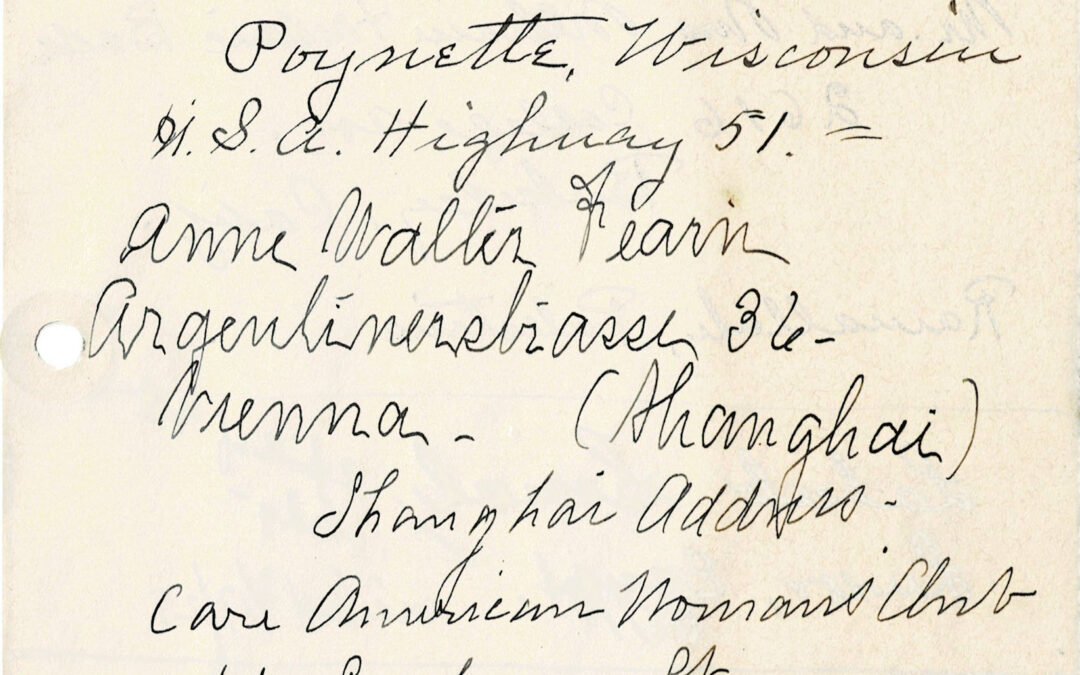 Poynette, Wisconsin
U.S.A. Highway 51.
Anne Walter Fearn
Argentinerstrasse 36-
Vienna - (Shanghai)
Shanghai Address -
Care American Womans Club